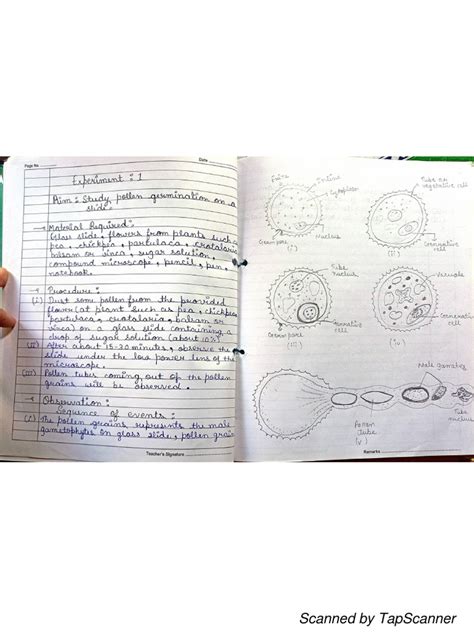 Page No.
Date
Experiment : 1
Aim : Study pollen germination on a
slide.
→ Material Required :
Glass slide, flowers from plants such as
pea, chickpea, partulaca, crotalaria
balsam or vinca, sugar solution,
compound microscope, pencil, pen,
notebook.
→ Procedure :
(i) Dust some pollen from the provided
flower (of plant such as pea, chickpea
partulaca, crotalaria, balsam or
vinca) on a glass slide containing a
drop of sugar solution (about 10%)
(ii) After about 15-30 minutes, observe the
slide under the low power lens of the
microscope.
(iii) Pollen tubes coming out of the pollen
grains will be observed.
→ Observation :
Sequence of events :
(i) The pollen grains represents the male
gametophytes on glass slide, pollen grain
Teacher's Signature
Exine
Intine
Cytoplasm
Germ pore
Nucleus
(i)
Tube or
vegetative cell
Generative
cell
(ii)
Tube
Nucleus
Germ pore
Generative
cell
(iii)
Vacuole
Generative
cell
(iv)
Male gametes
Pollen
Tube
(v)
Tube
nucleus
Remarks
Scanned by TapScanner